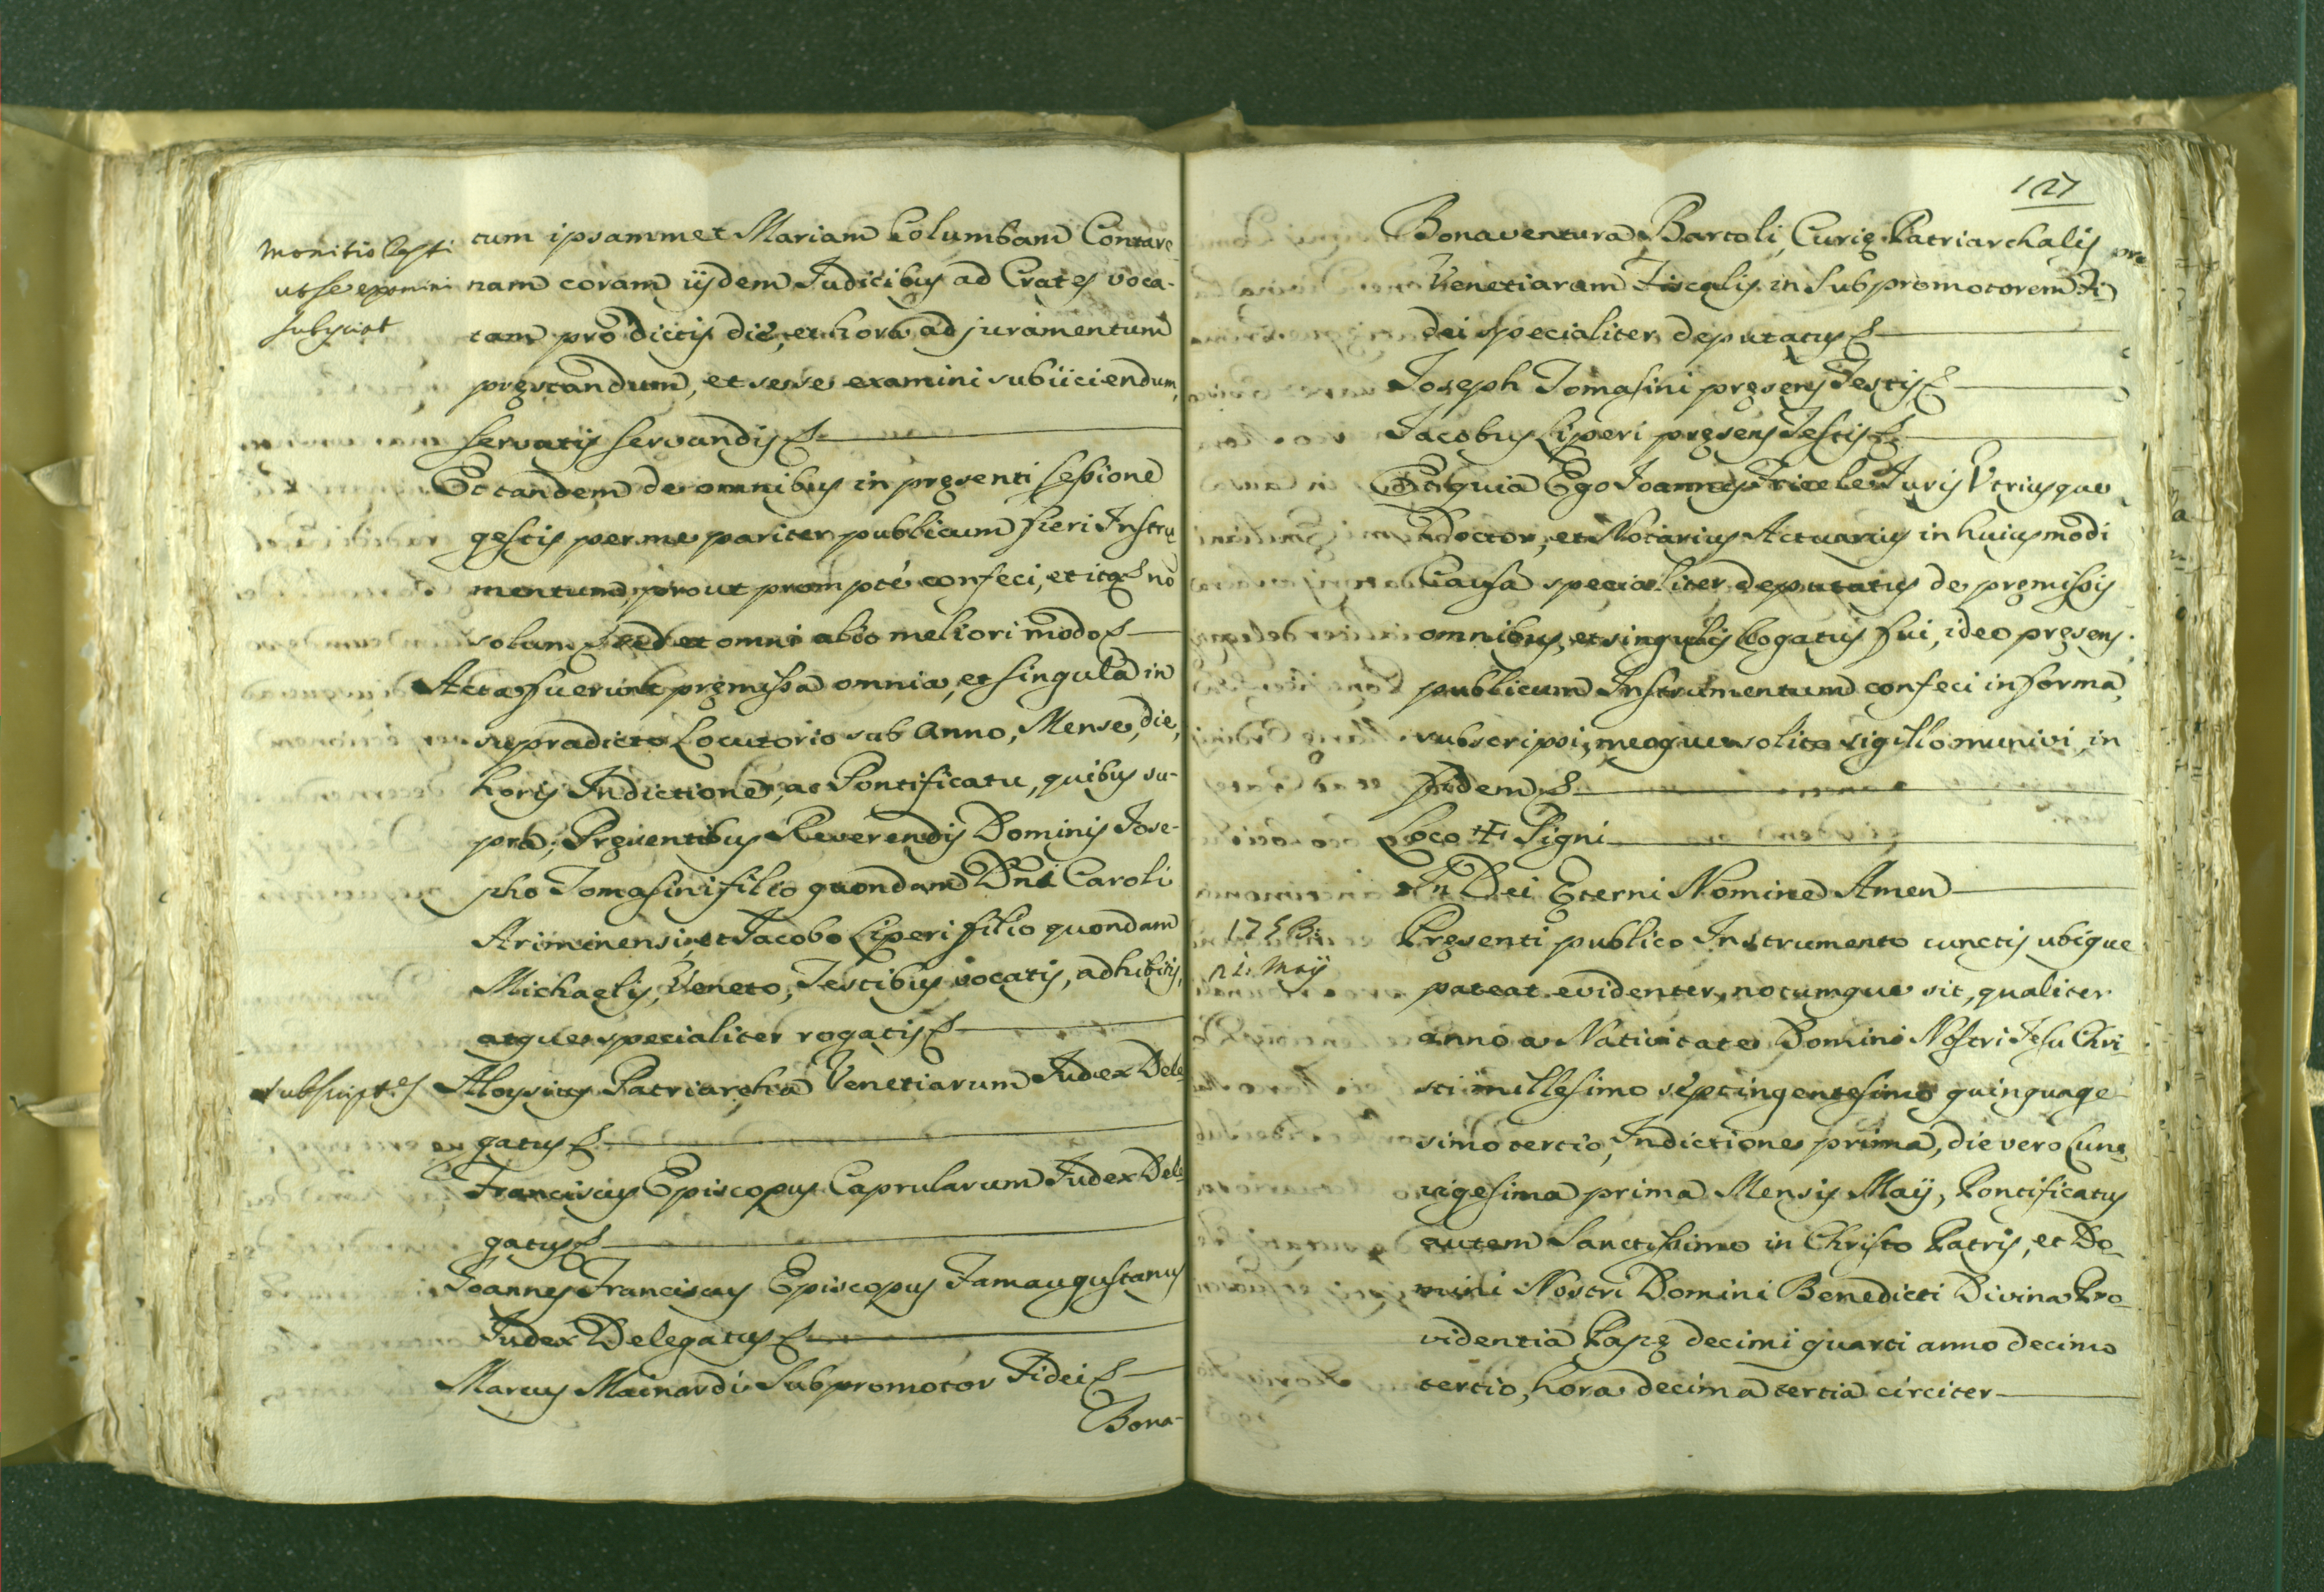 monitio testi
ut se examini
subijciat
tum ipsammet Mariam Columbam Contare-
nam coram ijsdem Judicibus ad Crates voca-
tam pro dictis die, et hora ad juramentum
pręstandum, et sese examini subiiciendum,
servatis servandis &
Et tandem de omnibus in pręsenti sessione
gestis per me pariter publicum fieri Instru
mentum, prout prompté confeci, et ita & no
solum, sed et omni alio meliori modo &
Acta fuerunt pręmissa omnia, et singula in
supradicto Locutorio sub anno, Mense, die,
horis Indictione, ac Pontificatu, quibus su-
pra; Pręsentibus Reverendis Dominis Jose-
pho Tomasini filio quondam Dni Caroli
Ariminensi, et Jacobo Liperi filio quondam
Michaelis, Veneto, Testibus vocatis, adhibitis,
atque specialiter rogatis &
subscript.es
Aloysius Patriarcha Venetiarum Judex Dele
gatus &
Franciscus Episcopus Caprularum Judex Dele
gatus &
Joannes Franciscus Episcopus Famaugustanus
Judex Delegatus &
Marcus Mainardi Subpromotor Fidei &
Bona-
127
Bonaventura Bartoli, Curię Patriarchalis
Venetiaram Fiscalis in Subpromotorem Fi
dei specialiter deputatus &
Joseph Tomasini pręsens Testis &
Jacobus Liperi pręsens Testis &
Et quia Ego Joannes Juris Utriusque
Doctor, et Notarius Actuarius in huiusmodi
Causa specialiter deputatus de pręmissis
omnibus, et singulis Rogatus fui, ideo pręsens
publicum Instrumentum confeci in forma,
subscripsi, meoque solito sigillo munivi in
fidem &
Loco ✠ Signi
In Dei Ęterni Nomine Amen
1753:
21. Maij
Pręsenti publico Instrumento cunctis ubique
pateat evidenter, notumque sit, qualiter
anno a Nativitate Domini Nostri Jesu Chri-
sti millesimo septingentesimo quinquage
simo tertio, Indictione prima, die vero Lunę
vigesima prima Mensis Maij, Pontificatus
autem Sanctissimo in Christo Patris, et Do-
mini Nostri Domini Benedicti Divina Pro-
videntia Papę decimi quarti anno decimo
tertio, hora decima tertia circiter